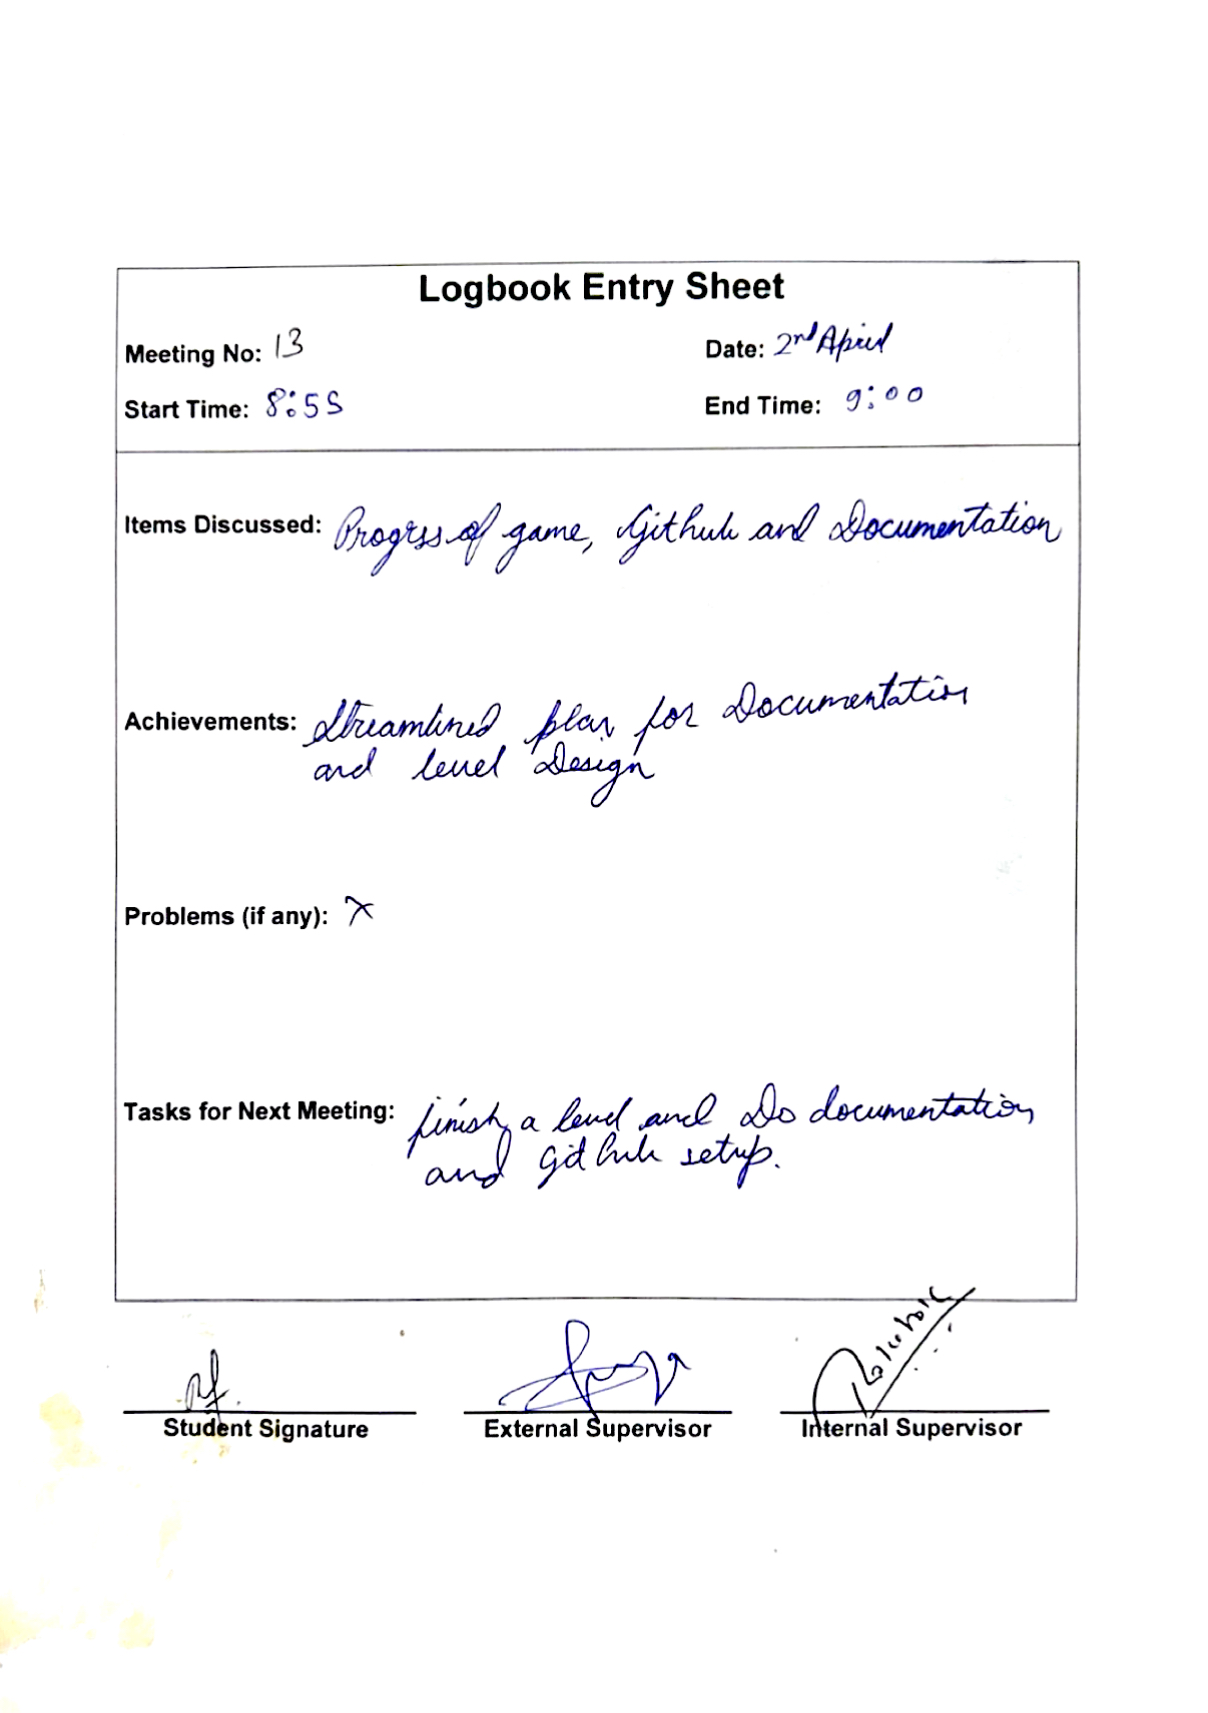 Logbook Entry Sheet
Meeting No: 13 Date: 2nd April
Start Time: 8:55 End Time: 9:00
Items Discussed: Progrss of game, Github and Documentation
Achievements: Streamlined plan for Documentation
and level Design
Problems (if any): X
Tasks for Next Meeting: finish a level and Do documentation
and github setup.
Student Signature External Supervisor Internal Supervisor